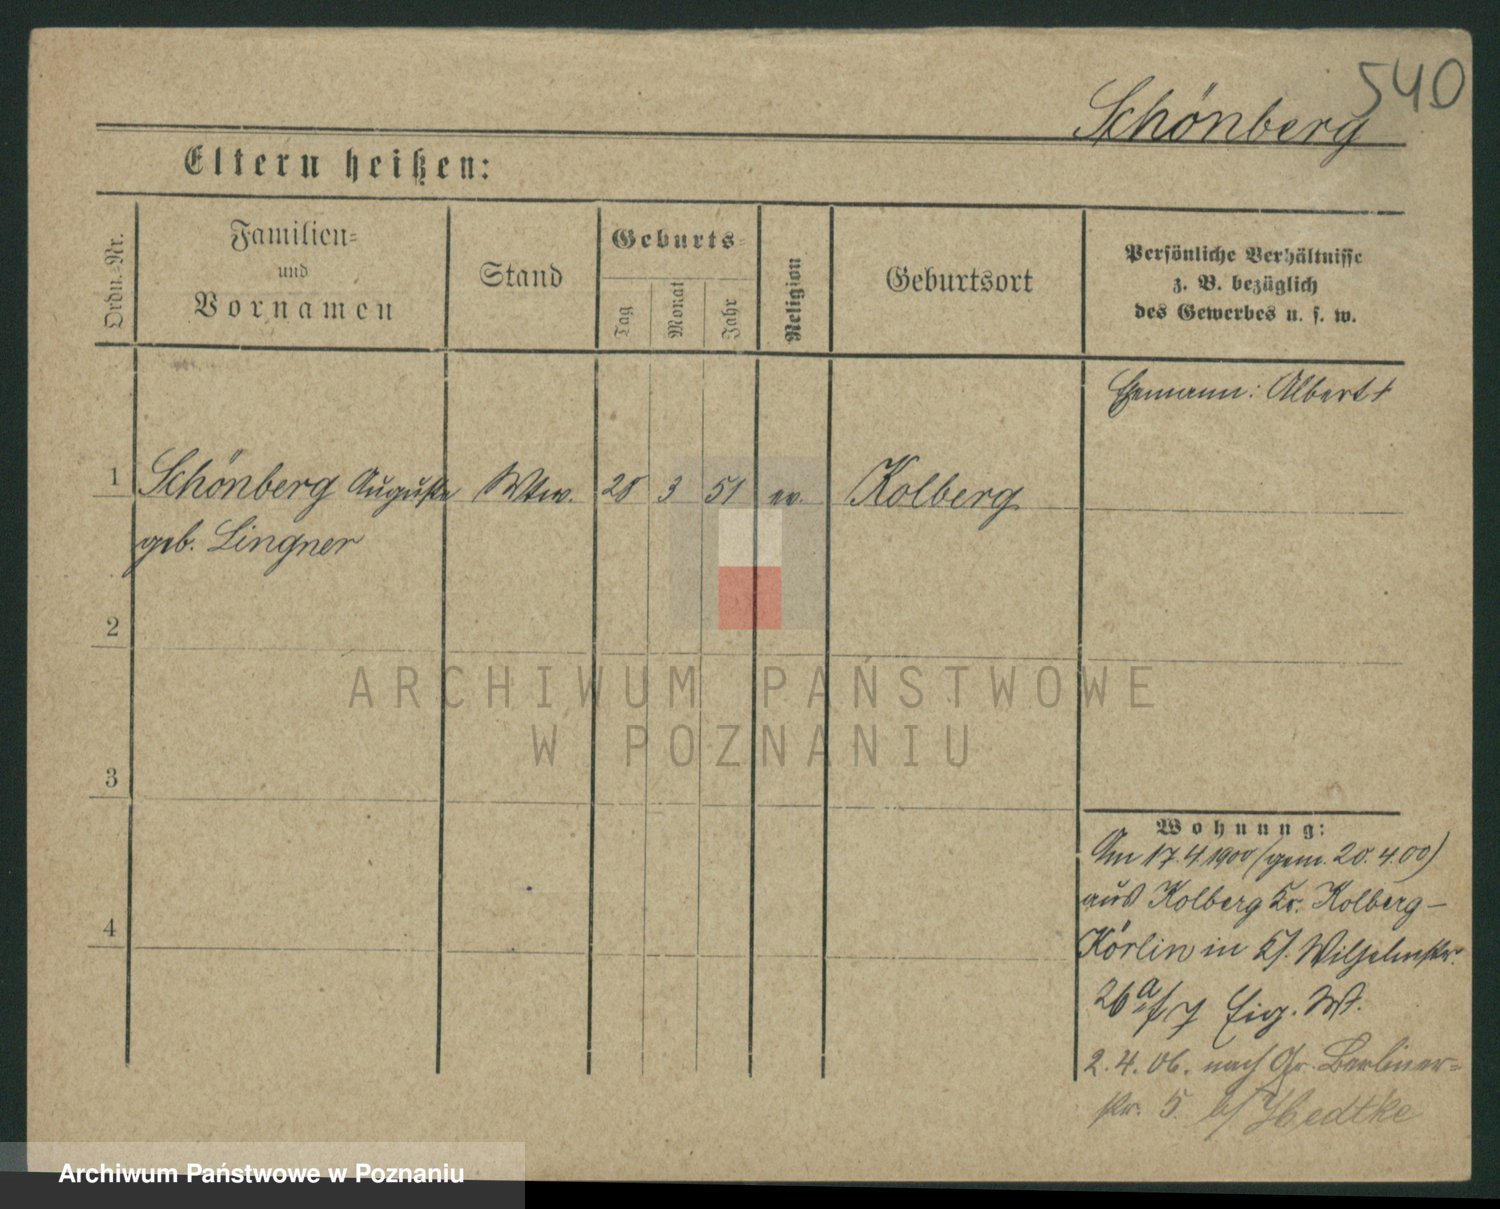 540
Schönberg
Eltern heißen:
Ordn.-Nr.
Familien-
und
Vornamen
Stand
Geburts-
Tag
Monat
Jahr
Religion
Geburtsort
Persönliche Verhältnisse
z. B. bezüglich
des Gewerbes u. s. w.
Ehemann: Albert †
1 Schönberg Auguste Wtw. 28 3 51 ev. Kolberg
geb. Lingner
2
3
4
Wohnung:
Am 17.4.1900 (gem. 20.4.00)
aus Kolberg Kr. Kolberg-
Körlin in Wilhelmstr.
26a Eig. W.
2.4.06. nach Gr. Berliner-
str. 5 b/ Hedtke
ARCHIWUM PAŃSTWOWE
W POZNANIU
Archiwum Państwowe w Poznaniu